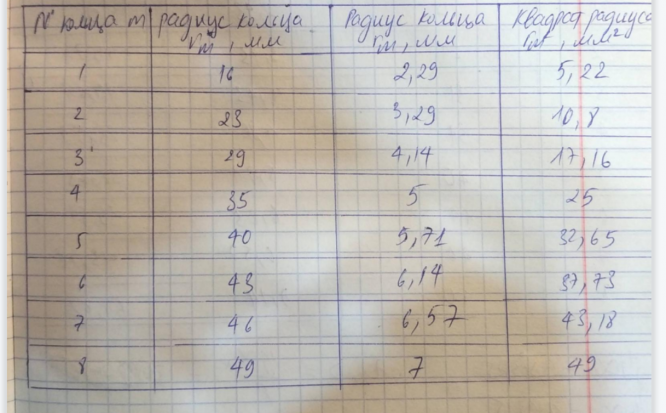 № кольца m | радиус кольца r*m, мм | Радиус кольца rm, мм | Квадрат радиуса rm², мм²
1 | 16 | 2,29 | 5,22
2 | 23 | 3,29 | 10,8
3 | 29 | 4,14 | 17,16
4 | 35 | 5 | 25
5 | 40 | 5,71 | 32,65
6 | 43 | 6,14 | 37,73
7 | 46 | 6,57 | 43,18
8 | 49 | 7 | 49